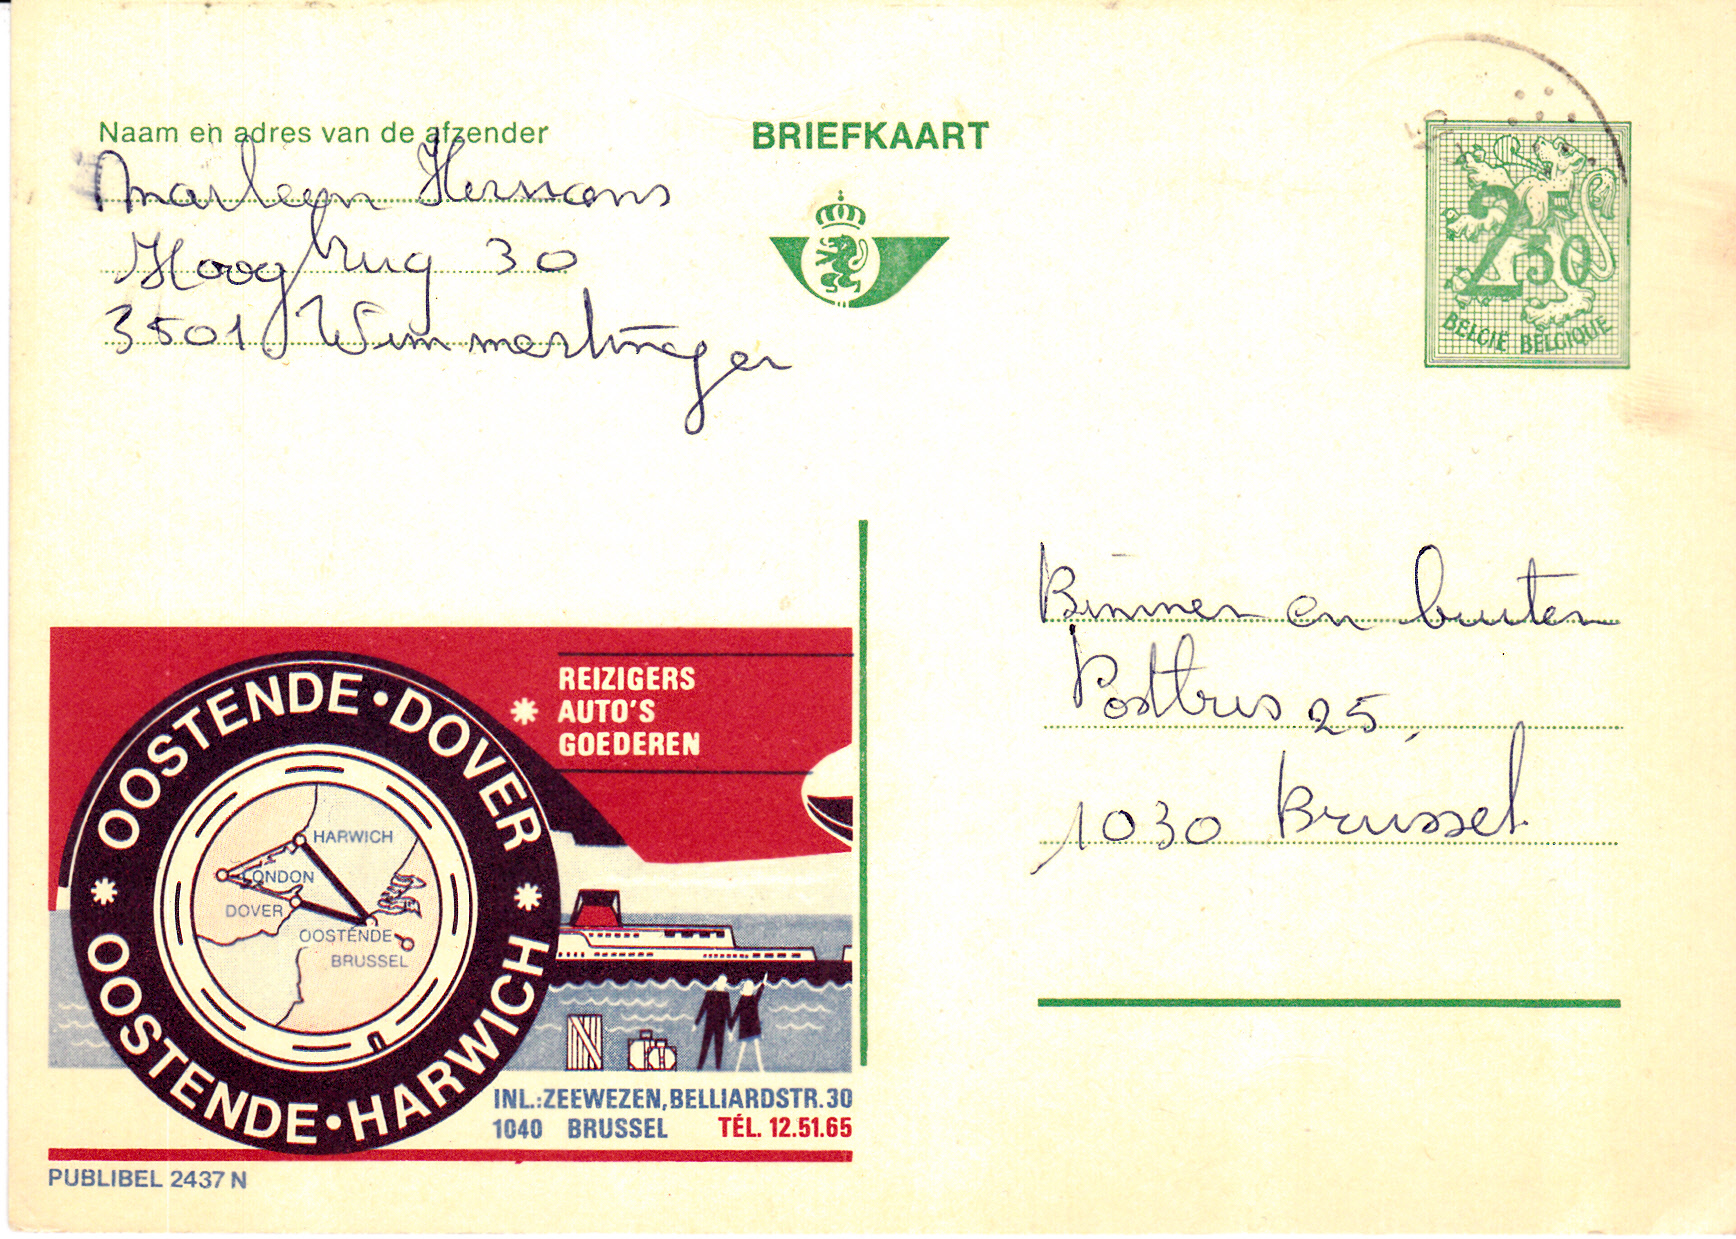 Naam en adres van de afzender
Marleen Hermans
Hoogbrug 30
3501 Wimmertingen
BRIEFKAART
2 F 50
BELGIË BELGIQUE
Binnen en buiten
Postbus 25,
1030 Brussel
REIZIGERS
AUTO'S
GOEDEREN
OOSTENDE•DOVER
OOSTENDE•HARWICH
HARWICH
LONDON
DOVER
OOSTENDE
BRUSSEL
INL.:ZEEWEZEN, BELLIARDSTR.30
1040 BRUSSEL TÉL. 12.51.65
PUBLIBEL 2437 N